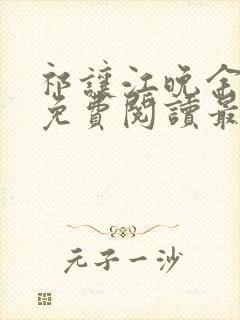 祁讓江晚
免費閱讀最
元子一沙